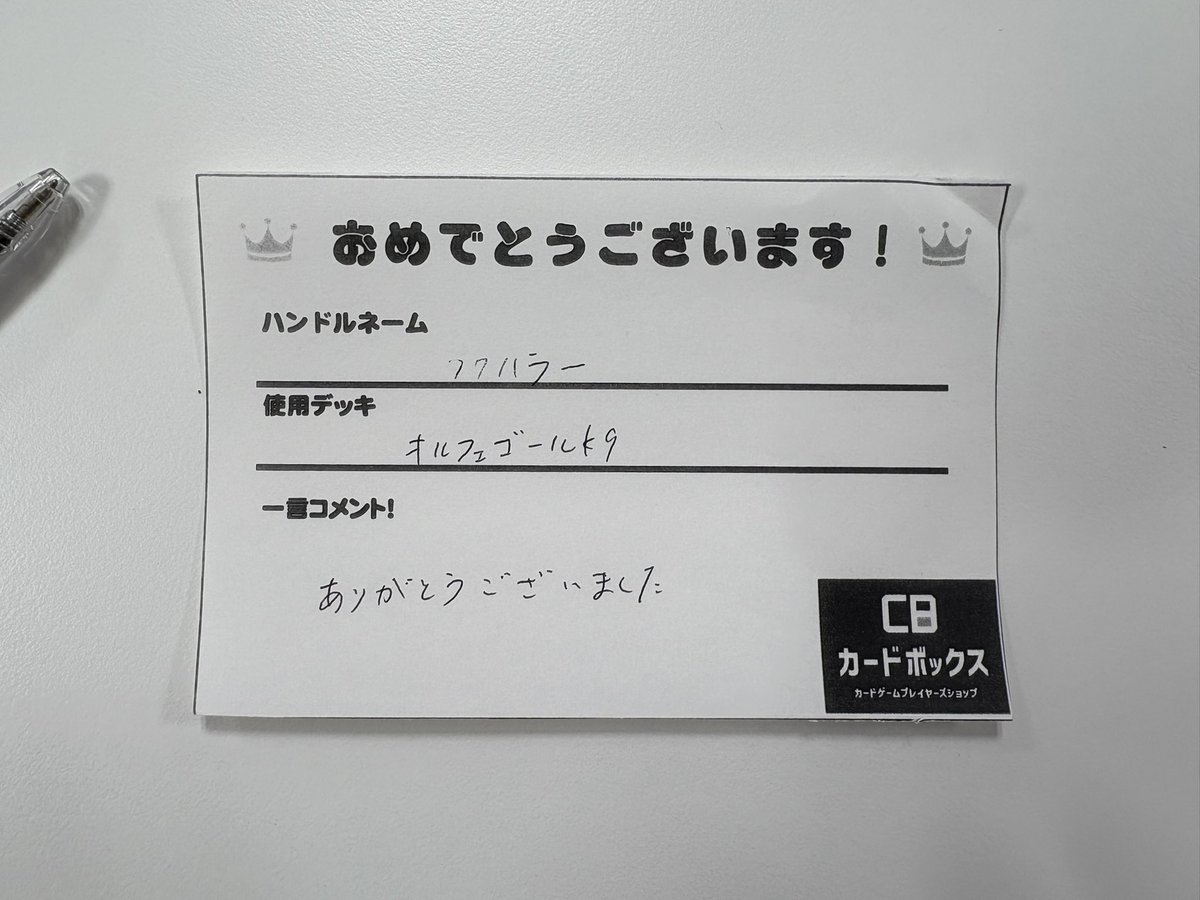 おめでとうございます!
ハンドルネーム
フクハラー
使用デッキ
オルフェゴールK9
一言コメント!
ありがとうございました
CB
カードボックス
カードゲームプレイヤーズショップ